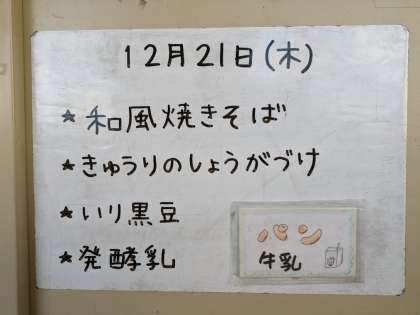 12月21日(木)
★和風焼きそば
★きゅうりのしょうがづけ
★いり黒豆
★発酵乳
パン
牛乳